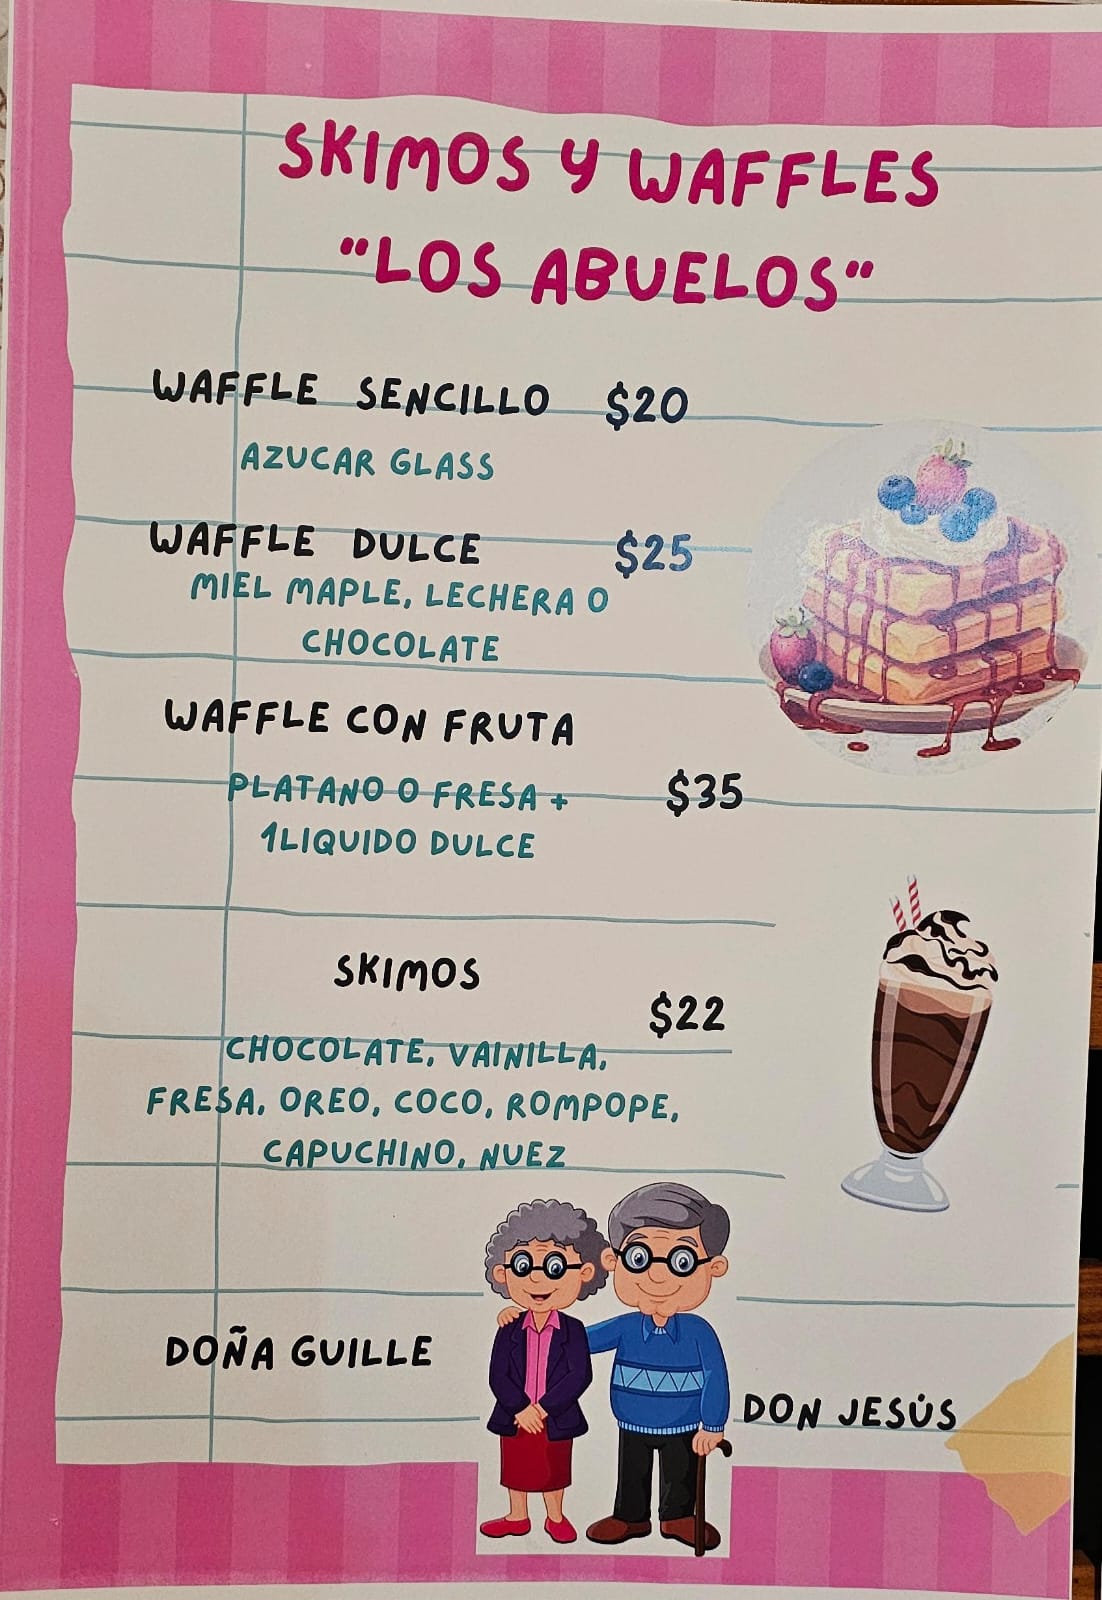 SKIMOS Y WAFFLES
"LOS ABUELOS"
WAFFLE SENCILLO $20
AZUCAR GLASS
WAFFLE DULCE $25
MIEL MAPLE, LECHERA O
CHOCOLATE
WAFFLE CON FRUTA
PLATANO O FRESA + $35
1LIQUIDO DULCE
SKIMOS
$22
CHOCOLATE, VAINILLA,
FRESA, OREO, COCO, ROMPOPE,
CAPUCHINO, NUEZ
DOÑA GUILLE
DON JESÚS